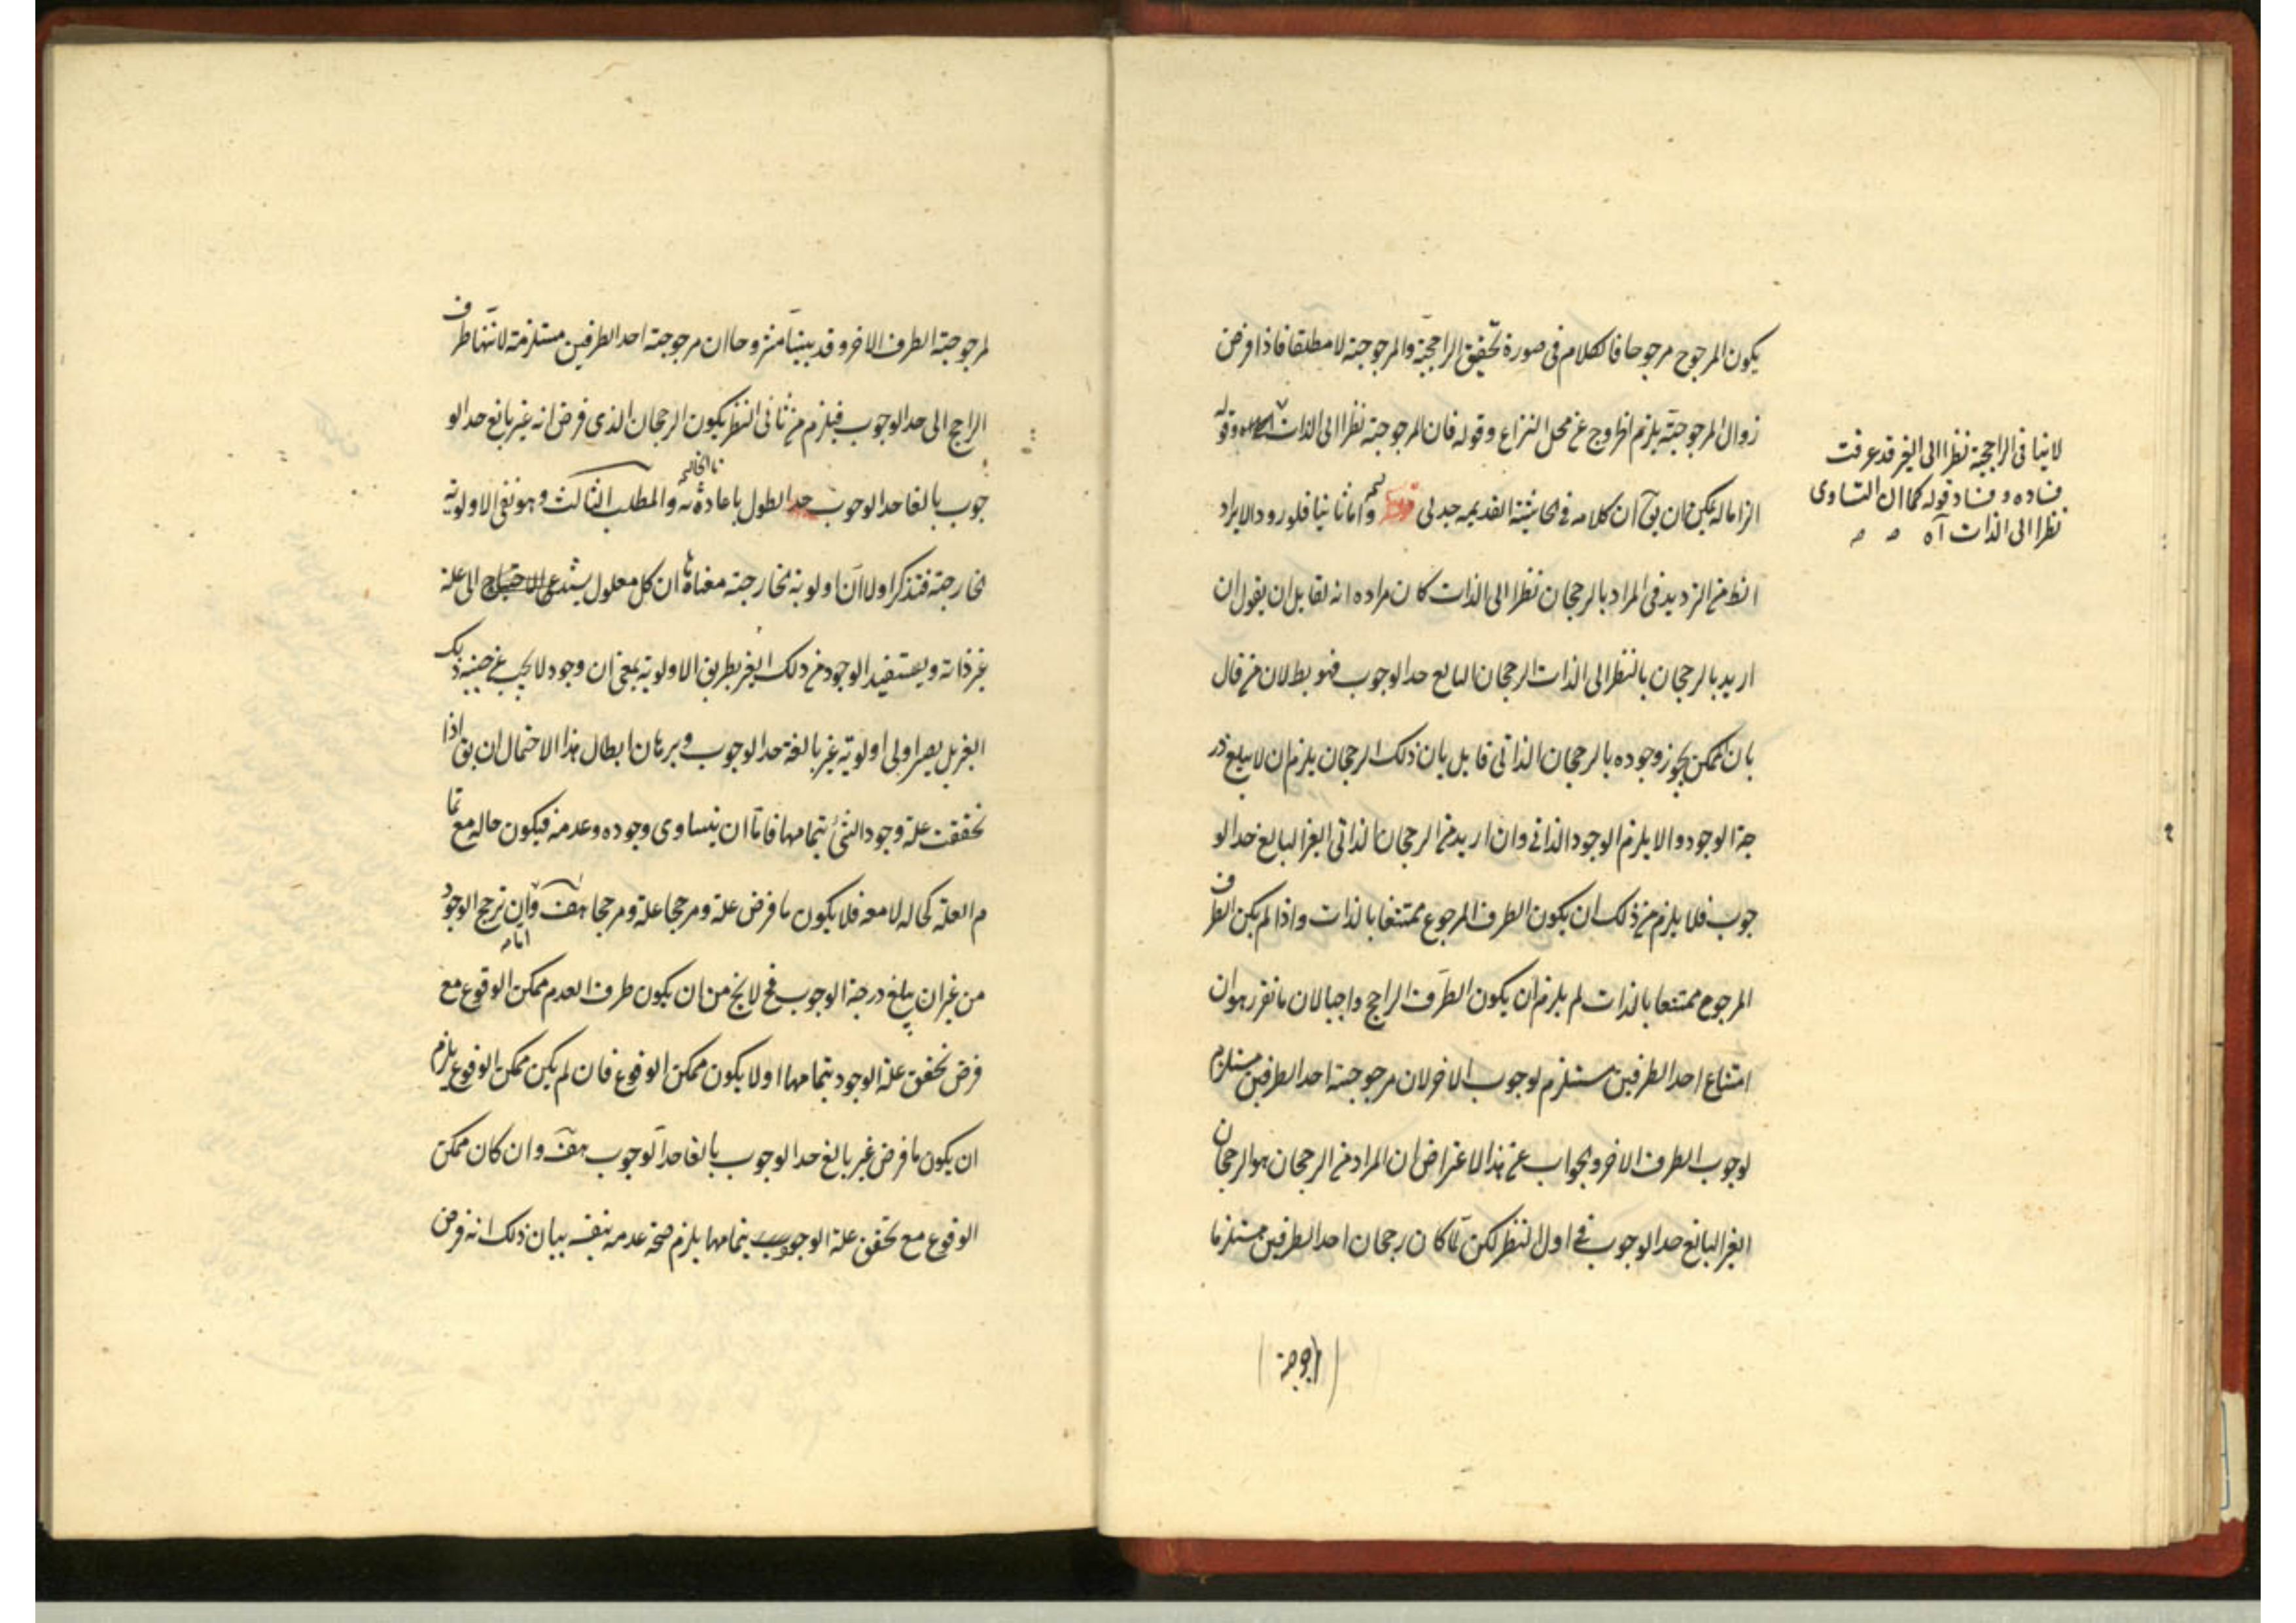 يكون المرجوح مرجوحا فالكلام في صورة تحقيق الراجحية والمرجوحية لا مطلقا فاذا فرض
زوال المرجوحية يلزم الخروج عن محل النزاع وقوله فان المرجوحية نظرا الى الذات وقوله
الزاما له يمكن ان يق ان كلامه في الحاشية القديمه جدلى واما ثانيا فلورود الايراد
لا ينافى الراجحية نظرا الى الغير قد عرفت
فساده وفساد قوله كما ان التساوى
نظرا الى الذات آه
الظ من الترديد في المراد بالرجحان نظرا الى الذات كان مراده انه لقايل ان يقول ان
اريد بالرجحان بالنظر الى الذات الرجحان البالغ حد الوجوب فهو بطلان من قال
بان الممكن يجوز وجوده بالرجحان الذاتى قايل بان ذلك الرجحان يلزم ان لا يبلغ در
جة الوجود والا يلزم الوجود الذاتى وان اريد من الرجحان الذاتى الغير البالغ حد الو
جوب فلا يلزم من ذلك ان يكون الطرف المرجوح ممتنعا بالذات واذا لم يكن الطرف
المرجوح ممتنعا بالذات لم يلزم ان يكون الطرف الراجح واجبا لان ما تقرر هو ان
امتناع احد الطرفين مستلزم لوجوب الاخر لان مرجوحية احد الطرفين مستلزم
لوجوب الطرف الاخر والجواب عن هذا الاعتراض ان المراد من الرجحان هو الرجحان
الغير البالغ حد الوجوب في اول النظر لكن لما كان رجحان احد الطرفين مستلزما
لمرجوحية الطرف الاخر وقد بينا مشروحا ان مرجوحية احد الطرفين مستلزمة لانتها طرف
الراجح الى حد الوجوب فيلزم من ثانى النظر يكون الرجحان الذى فرض انه غير بالغ حد الو
جوب بالغا حد الوجوب الطول باعادة والمطلب الثالث وهو نفى الاولوية
الخارجية فنذكر اولا ان اولوية الخارجية معناها ان كل معلول يستدعى الاحتياج الى علة
غير ذاته ويستفيد الوجود من ذلك الغير بطريق الاولوية بمعنى ان وجود لا يجب عن
الغير بل يصير اولى اولوية غير بالغة حد الوجوب وبرهان ابطال هذا الاحتمال ان يق اذا
تحققت علة وجود الشئ بتمامها فاما ان يتساوى وجوده وعدمه فيكون حاله مع تما
م العلة كحاله لا معه فلا يكون ما فرض علة ومرجحا علة ومرجحا هف وان ترجح الوجود
من غير ان يبلغ درجة الوجوب فح لا يخ من ان يكون طرف العدم ممكن الوقوع مع
فرض تحقق علة الوجود بتمامها او لا يكون ممكن الوقوع فان لم يكن ممكن الوقوع يلزم
ان يكون ما فرض غير بالغ حد الوجوب بالغا حد الوجوب هف وان كان ممكن
الوقوع مع تحقق علة الوجوب بتمامها يلزم صحة عدمه بنفسه بيان ذلك انه فرض